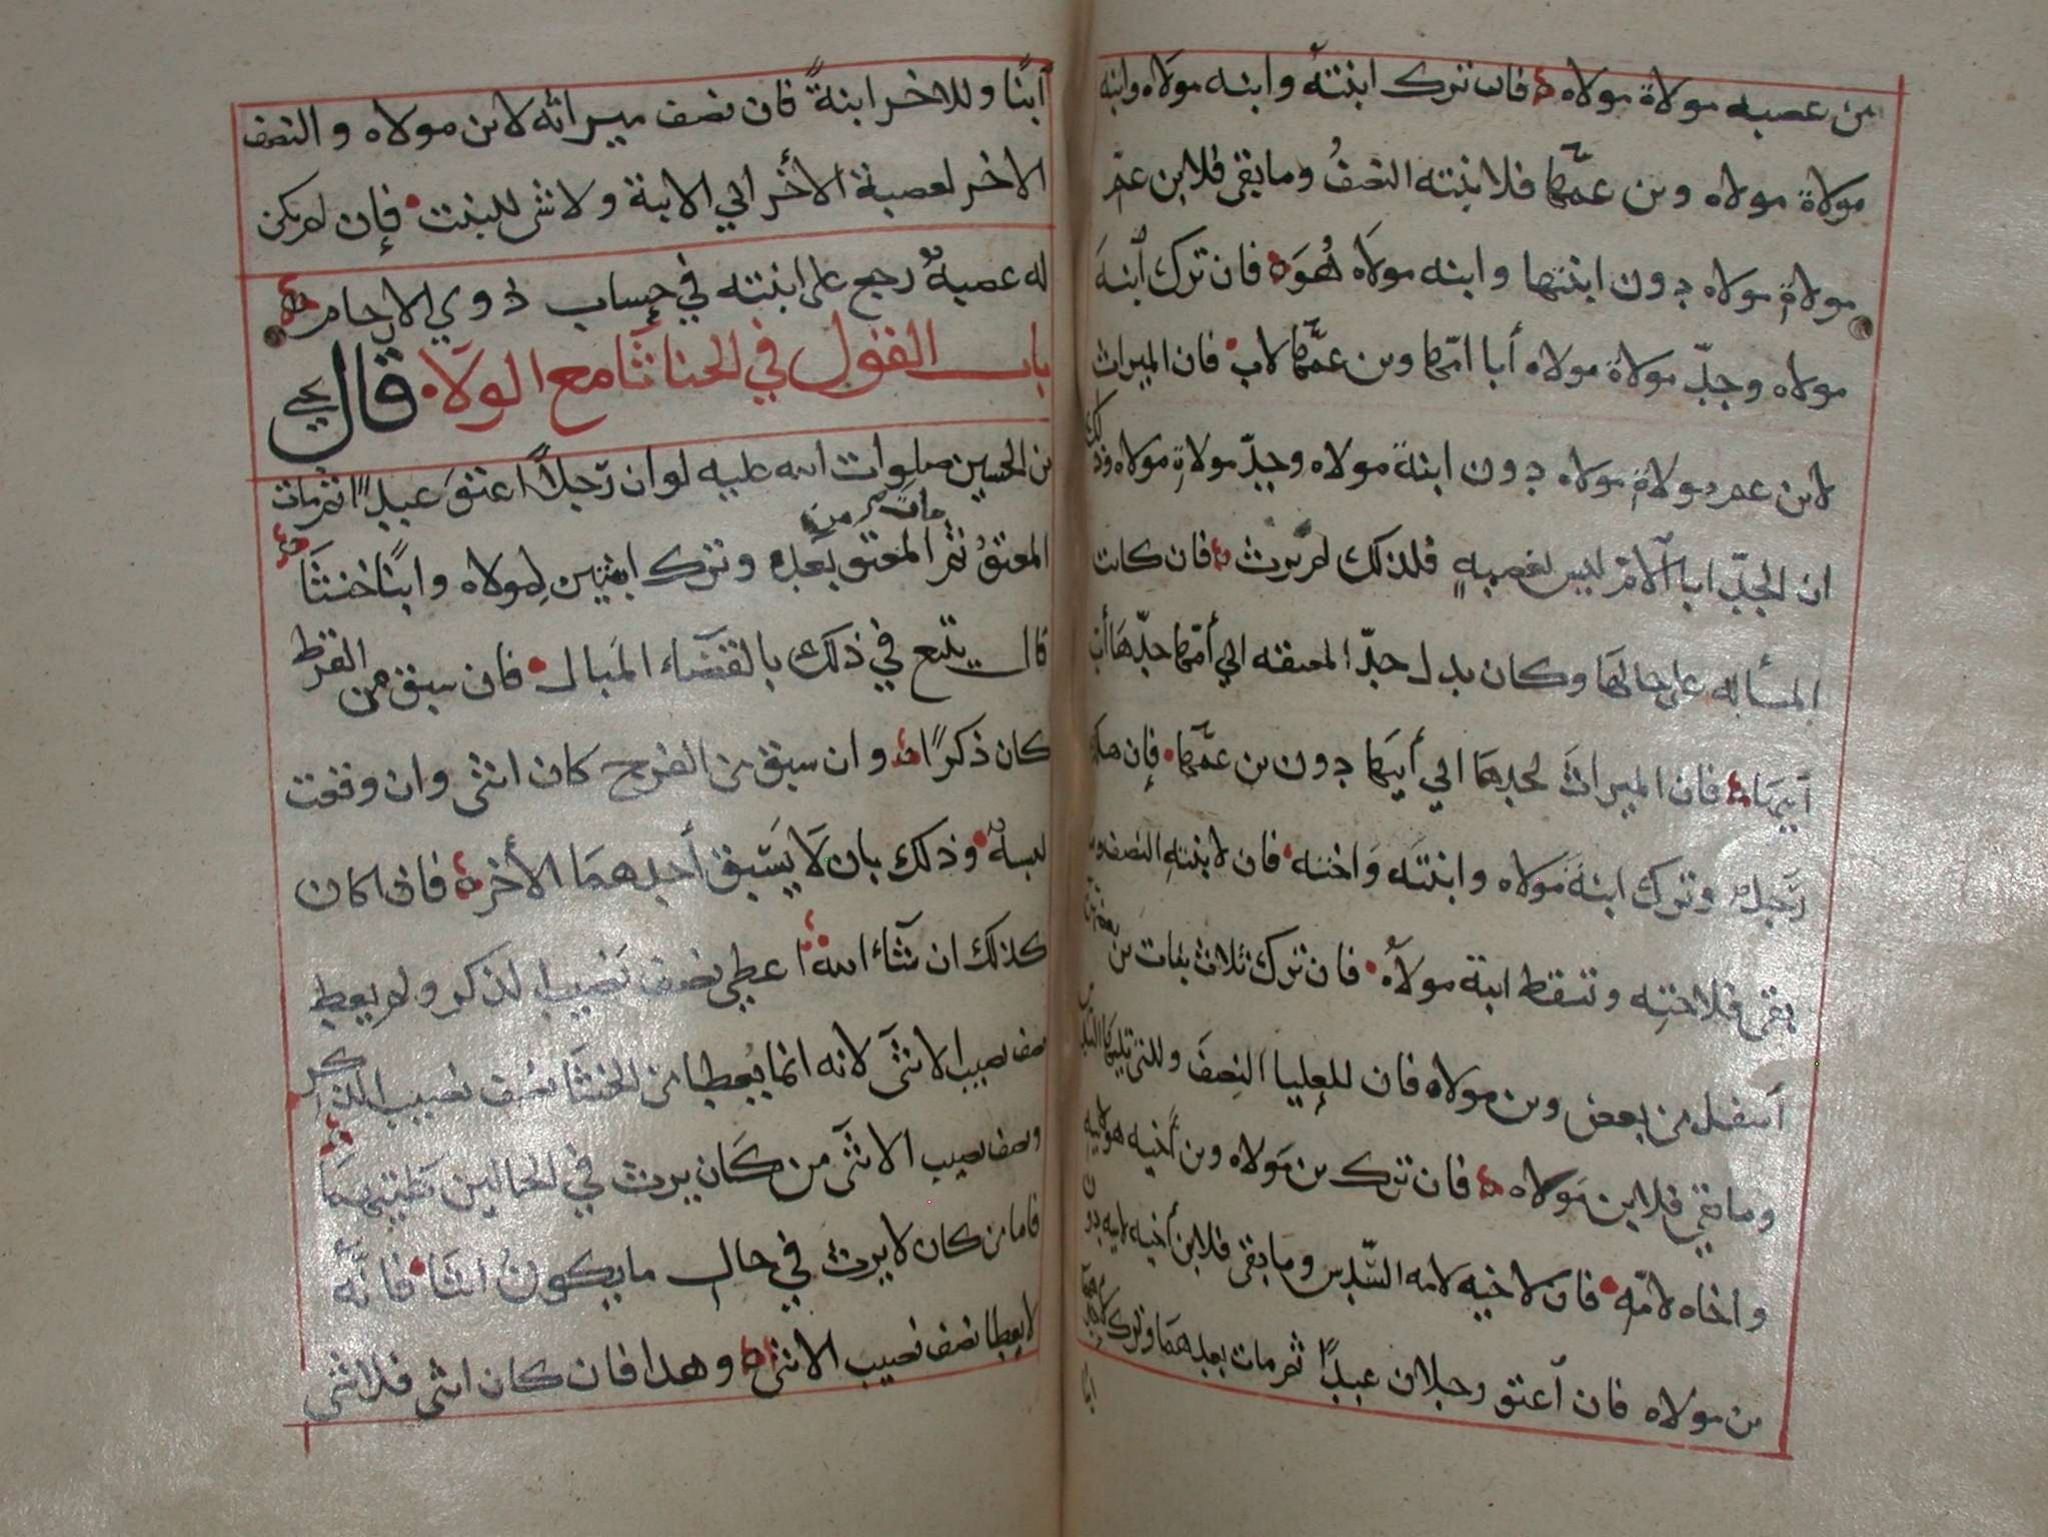 من عصبه مولاة مولاه فان ترك ابنته وابنه مولاه وابنه
مولاة مولاه وبن عمها فلابنته النصف وما بقى فلابن عم
مولاة مولاه دون ابنتها وابنه مولاه هو فان ترك ابنة
مولاه وجد مولاة مولاه أبا امها وبن عمها لاب فان الميراث
لابن عم مولاة مولاه دون ابنة مولاه وجد مولاة مولاه وذلك
ان الجد ابا الام ليس بعصبه فلذلك لم يرث فان كانت
المسأله على حالها وكان بدل جد المعتقه ابي أمها جدها أب
أبيها فان الميراث لجدها ابي أبيها دون بن عمها فإن هلك
رجل وترك ابنة مولاه وابنته واخته فان لابنته النصف وما
بقى فلاخته وتسقط ابنة مولاه فان ترك ثلاث بنات بن بعضهن
أسفل من بعض وبن مولاه فان للعليا النصف وللتي تليها السدس
وما بقي فلابن مولاه فان ترك بن مولاه وبن أخيه لابيه
واخاه لامه فان لاخيه لامه السدس وما بقى فلابن أخيه لابيه دون
بن مولاه فان أعتق رجلان عبدا ثم مات بعدهما وترك احدهما
أبنا وللاخر ابنة فان نصف ميراثه لابن مولاه والنصف
الاخر لعصبة الأخر ابي الابنة ولاشى للبنت فإن لم يكن
له عصبة رجع على ابنته في حساب ذوي الارحام
باب القول في الخناثا مع الولاء قال يحيى
بن الحسين صلوات الله عليه لو ان رجلا اعتق عبدا ثم مات
المعتق ثم مات المعتق من بعده وترك ابنتين لمولاه وابنا خنثا
قال يتبع في ذلك بالقضاء المبال فان سبق من القرط
كان ذكرا وان سبق من الفرج كان انثى وان وقعت
لبسة وذلك بان لا يسبق أحدهما الأخر فاذا كان
كذلك ان شاء الله اعطي نصف نصيب الذكر ولم يعط
نصف نصيب الانثى لانه انما يعطا من الخنثا نصف نصيب الذكر
ونصف نصيب الانثى من كان يرث في الحالين كلتيهما
فاما من كان لا يرث في حال ما يكون انثا فانه
لا يعطا نصف نصيب الانثى وهذا فان كان انثى فلا شي